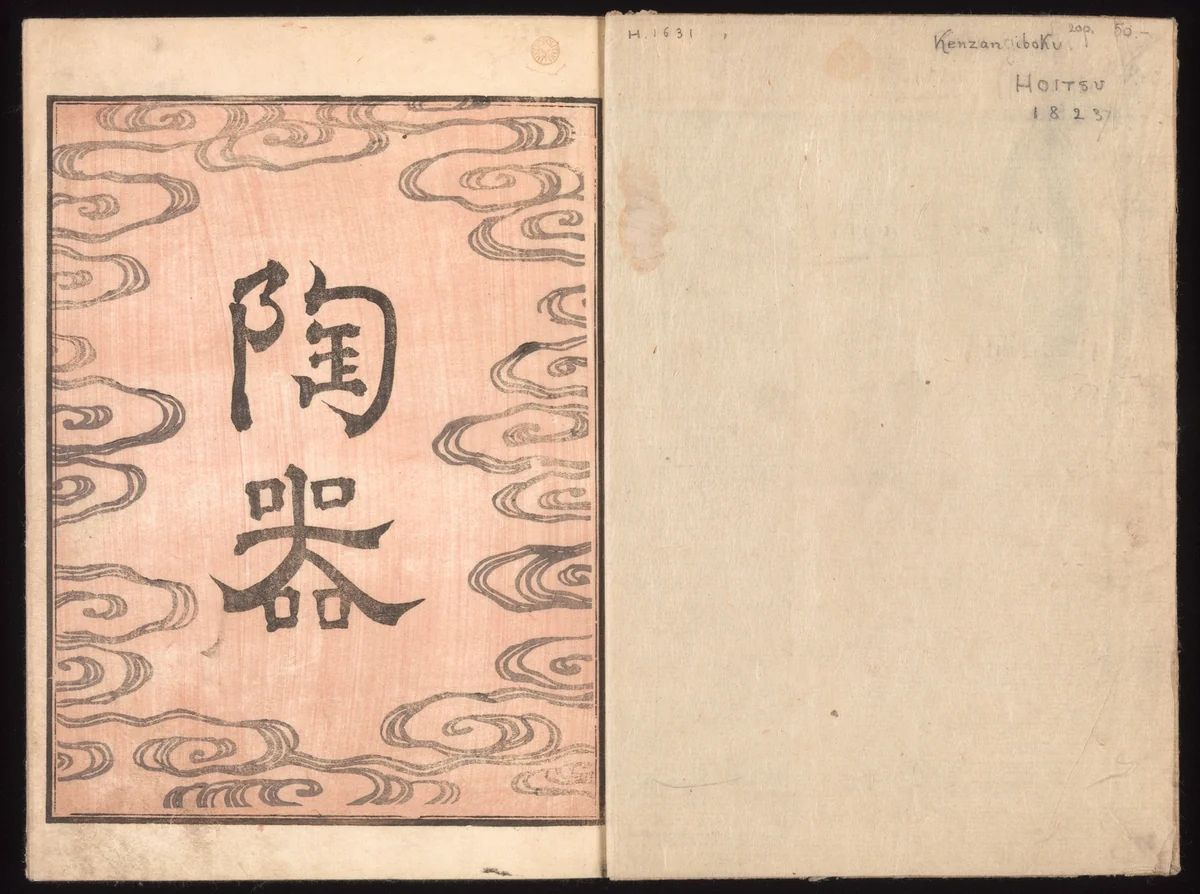 H.1631
Kenzan iboku 200. 50.-
HOITSU
1823
陶
器